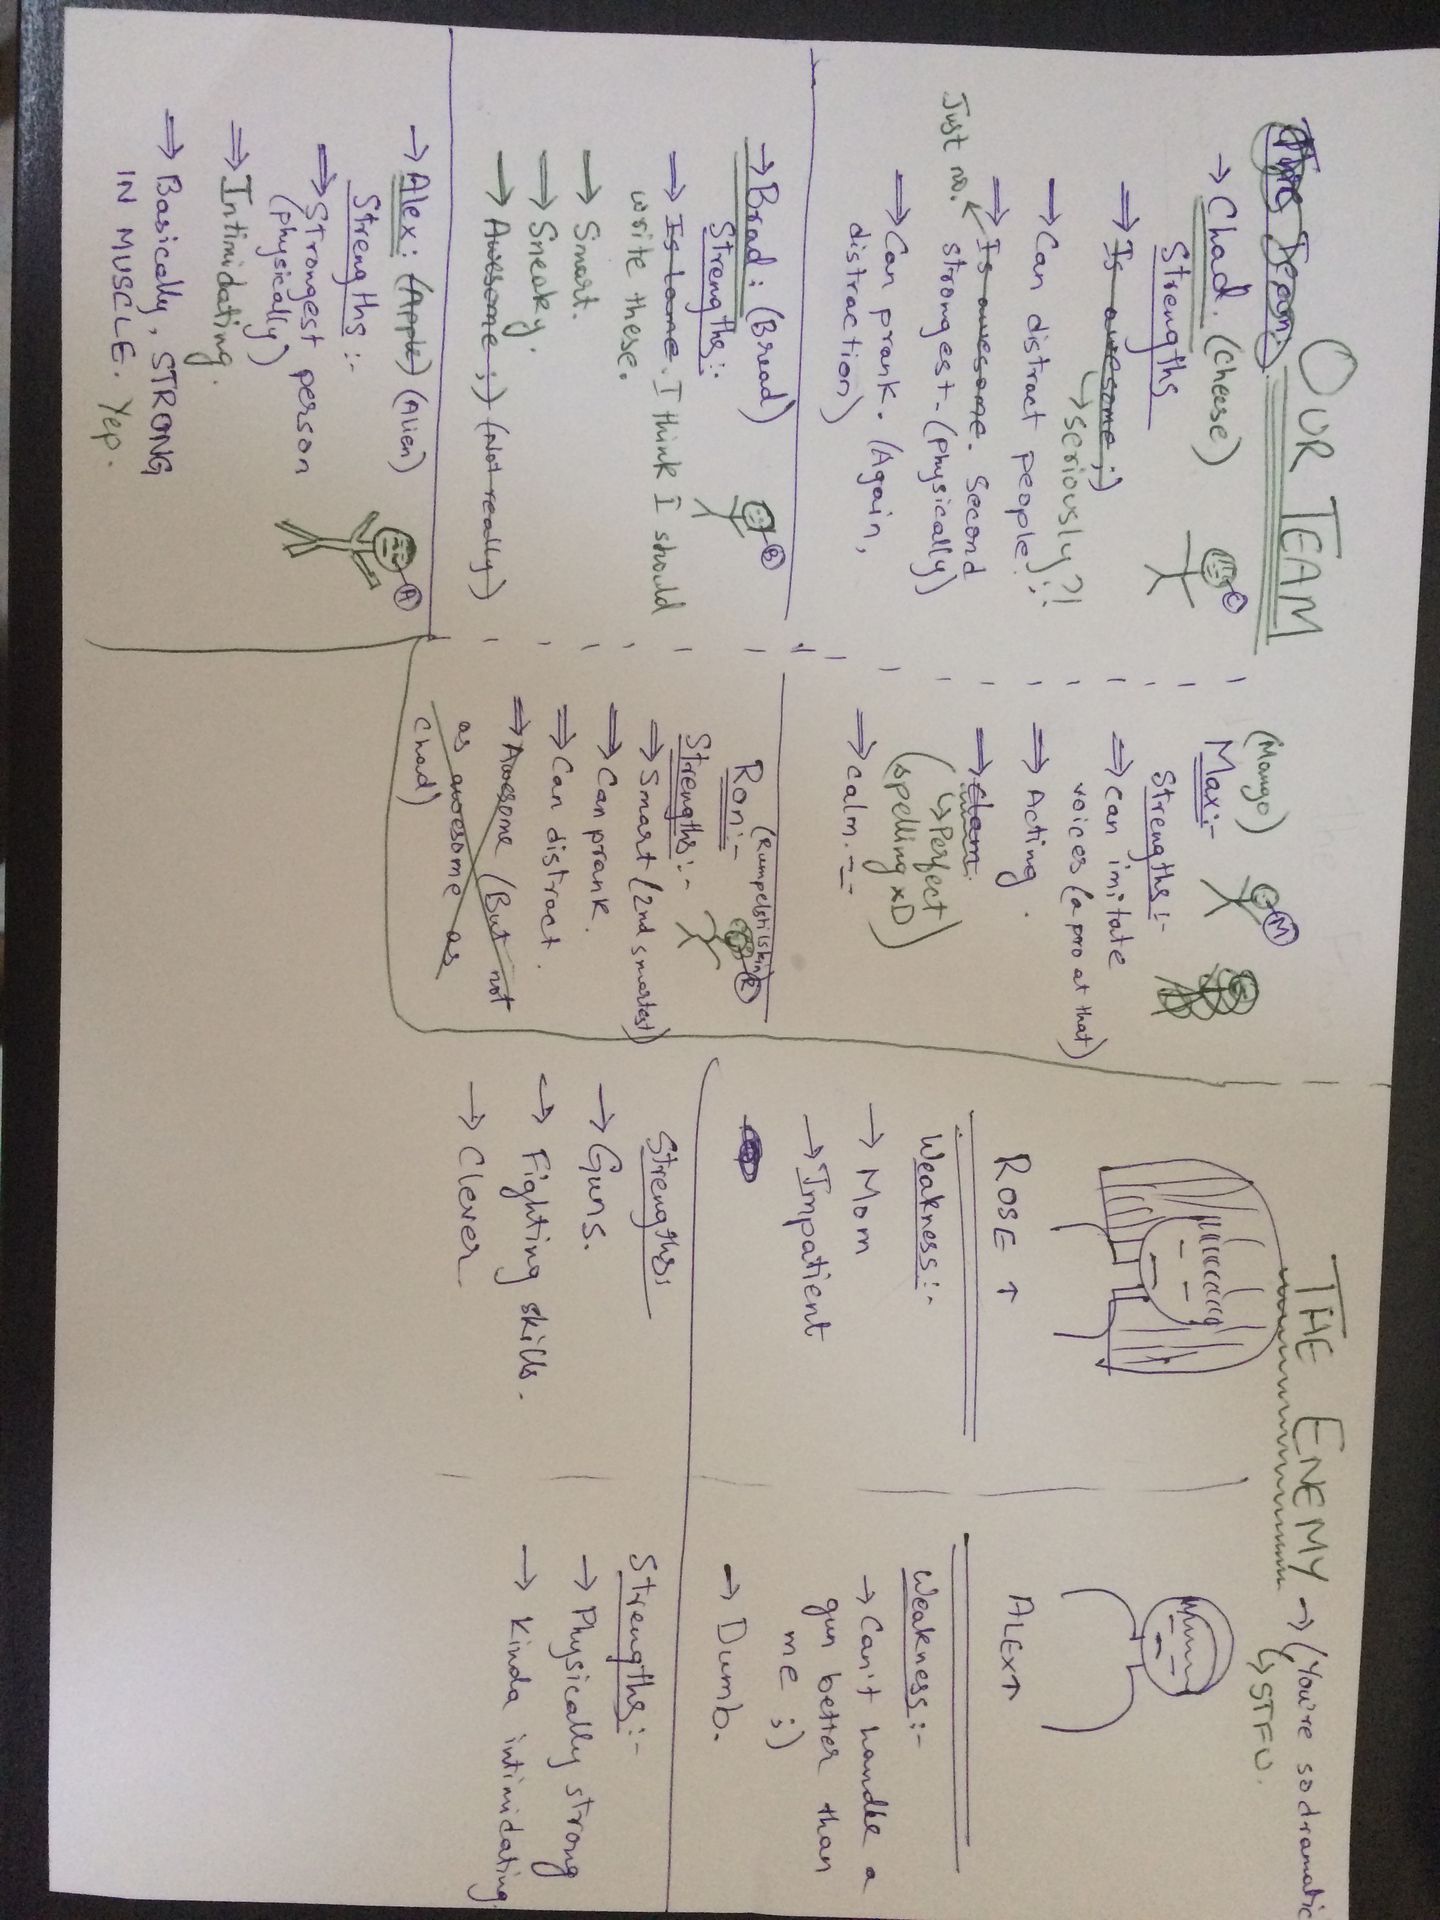 OUR TEAM
→ Chad. (cheese)
C
Strengths
⇒ Is awesome ;)
↳ seriously?!
⇒ Can distract people!
⇒ Is awesome. Second
Just no.
strongest - (physically)
⇒ Can prank. (Again,
distraction)
→ Brad : (Bread)
B
Strengths:-
⇒ Is lame. I think I should
write these.
→ Smart.
→ Sneaky.
→ Awesome ;) (Not really)
→ Alex : (Apple) (Alien)
A
Strengths :-
⇒ Strongest person
(physically)
⇒ Intimidating.
⇒ Basically, STRONG
IN MUSCLE. Yep.
(Mango)
Max:-
M
Strengths:-
⇒ can imitate
voices (a pro at that)
⇒ Acting.
⇒ Clam.
↳ Perfect
(spelling xD)
⇒ calm. --
(Rumpelstilskin)
Ron:-
R
Strengths:-
⇒ Smart (2nd smartest)
⇒ Can prank.
⇒ Can distract.
⇒ Awesome (But not
as awesome as
Chad)
THE ENEMY → (You're so dramatic
↳ STFU.
ROSE ↑
Weakness:-
→ Mom
→ Impatient
Strengths:
→ Guns.
↪ Fighting skills.
→ Clever.
ALEX ↑
Weakness:-
→ Can't handle a
gun better than
me ;)
→ Dumb.
Strengths:-
→ Physically strong
→ Kinda intimidating.